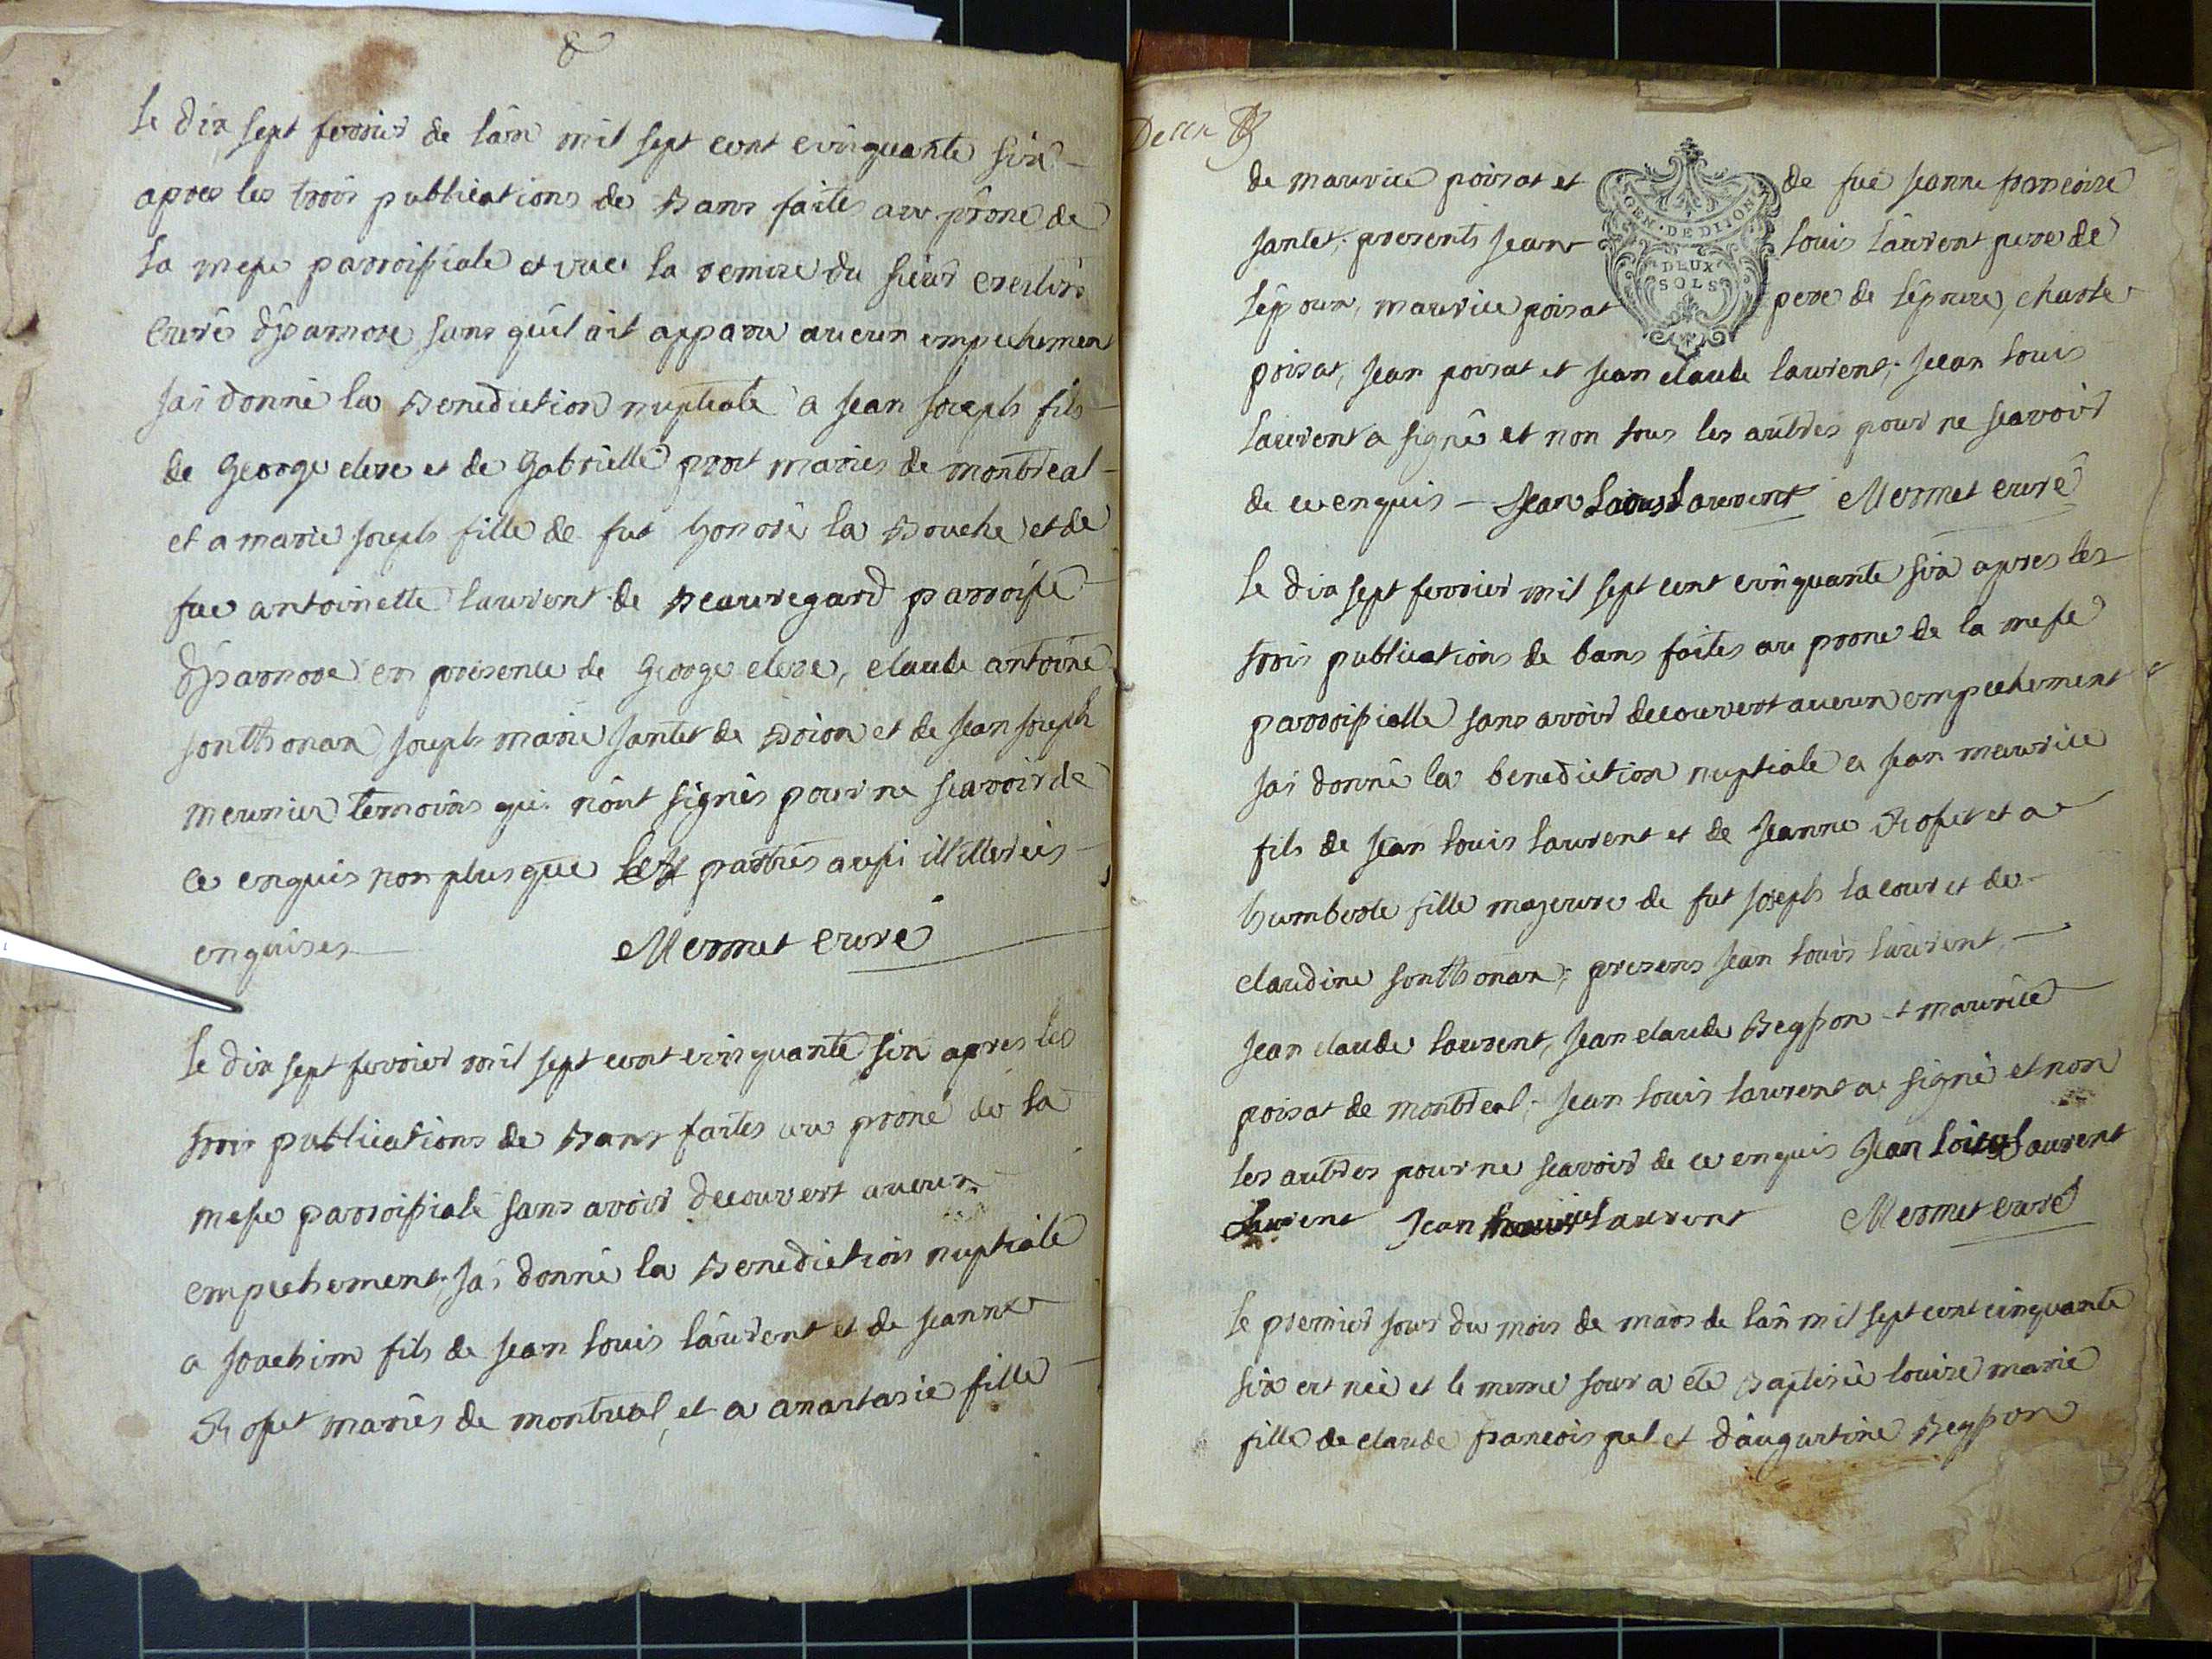 Le dix sept fevrier de lân mil sept cent cinquante six
apres les trois publications de Bans faites au prône de
la messe parroissiale et vue la remise du sieur
Curé d'jzarnore sans qu'il ait apparu aucun empechement
jai donné la Benediction nuptiale a jean joseph fils
de George clere et de Gabrielle prost mariés de montreal
et a marie joseph fille de fut honoré la Bouche et de
fue antoinette laurent de Beauregard parroisse
d'jzarnore en presence de George clere, claude antoine
sonthonax joseph marie jantet de Brion et de jean joseph
meunier temoins qui n'ont signés pour ne scavoir de
ce enquis non plus que les parties aussi illitterées
enquises Mermet Curé
le dix sept fevrier mil sept cent cinquante six apres les
trois publications de Bans faites au prone de la
messe parroissiale sans avoir decouvert aucun
empechement, jai donné la Benediction nuptiale
a joachim fils de jean louis lâurent et de jeanne
Rosset mariés de montreal, et a anastasie fille
de maurice poisat et de fue jeanne francoise
jantet, presents jean louis laurent pere de
lépoux, maurice poisat pere de lépouse, charle
poisat, jean poisat et jean claude laurent; jean louis
laurent a signé et non tous les autres pour ne scavoir
de ce enquis Jean Louis Laurent Mermet curé
GEN. DE DIJON
DEUX
SOLS
le dix sept fevrier mil sept cent cinquante six apres les
trois publications de bans faites au prone de la messe
parroissialle sans avoir decouvert aucun empechement
jai donné la benediction nuptiale a jean maurice
fils de jean louis laurent et de jeanne Rosset et a
humberte fille majeure de fut joseph lacour et de
claudine sonthonax; presens jean louis laurent,
jean claude laurent, jean claude Beysson et maurice
poisat de montreal; jean louis laurent a signé et non
les autres pour ne scavoir de ce enquis Jean Louis Laurent
Laurent Jean Laurent Mermet curé
le premier jour du mois de mars de lân mil sept cent cinquante
six est née et le meme jour a été Baptisée louise marie
fille de claude francois pul et d'augustine Beysson